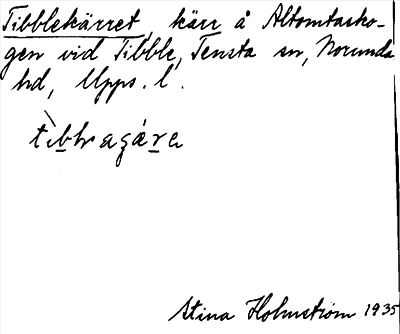 Tibblekärret, kärr å Altomtasko-
gen vid Tibble, Tensta sn, Norunda
hd, Upps. l.
Stina Holmström 1935